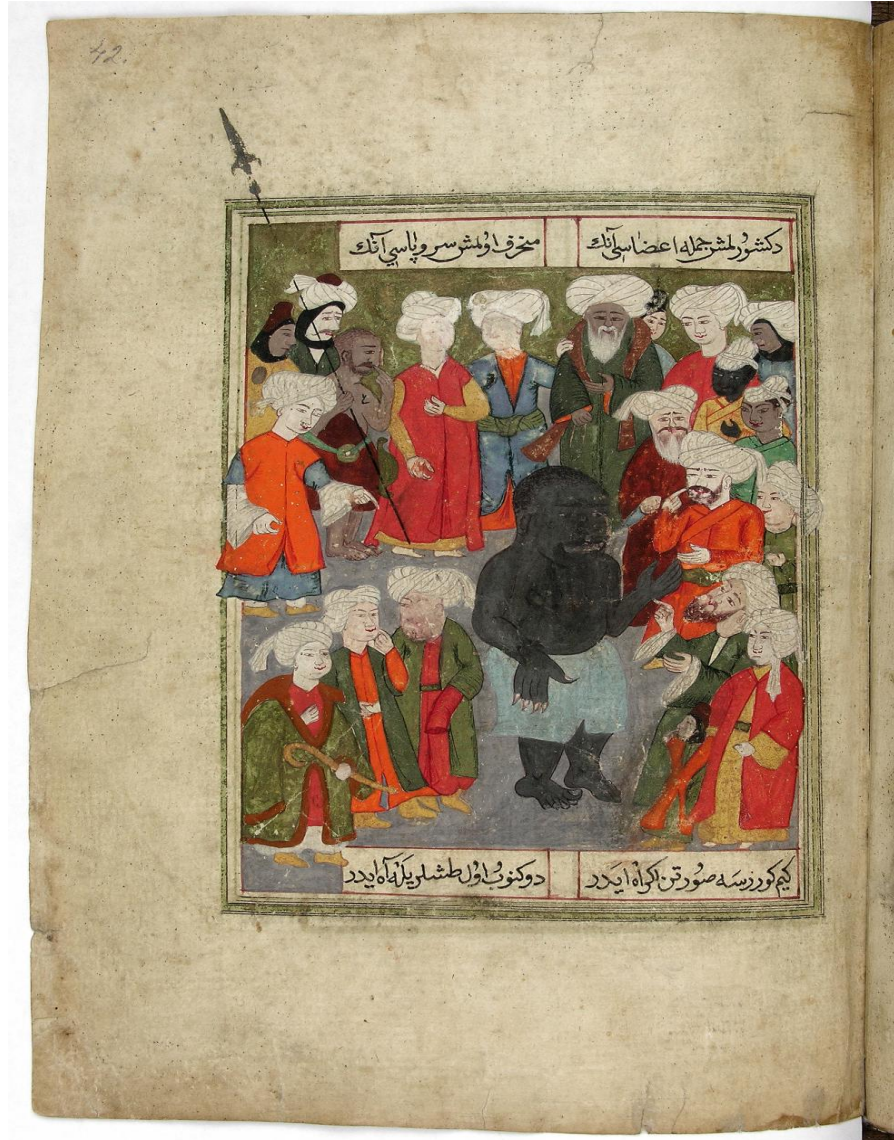 42.
دكشورلمش جمله اعضاسی آنك
منحرف اولمش سر و پاسی آنك
كیم كوررسه صورتن اكراه ایدر
دوكنوب اول طشلر یله آه ایدر